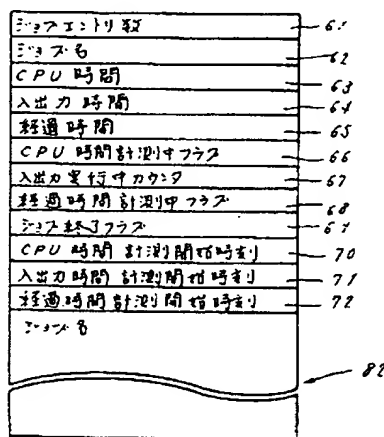 ジョブエントリ数 61
ジョブ名 62
CPU時間 63
入出力時間 64
経過時間 65
CPU時間計測中フラグ 66
入出力実行中カウンタ 67
経過時間計測中フラグ 68
ジョブ終了フラグ 69
CPU時間計測開始時刻 70
入出力時間計測開始時刻 71
経過時間計測開始時刻 72
ジョブ名
82